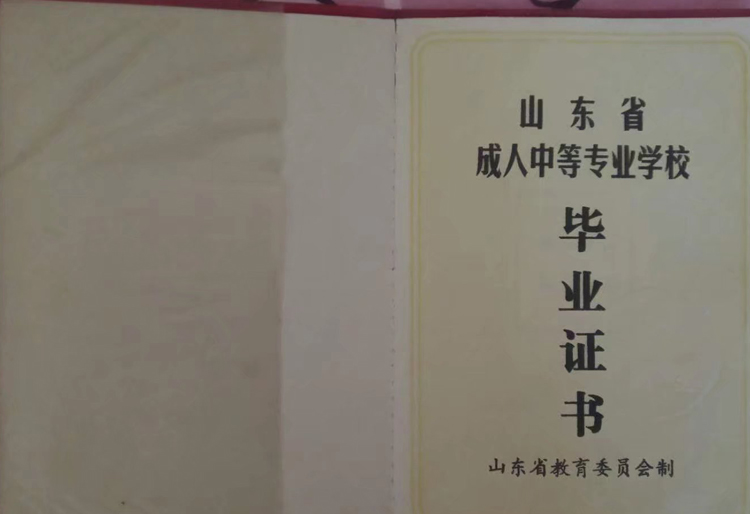 山东省
成人中等专业学校
毕
业
证
书
山东省教育委员会制